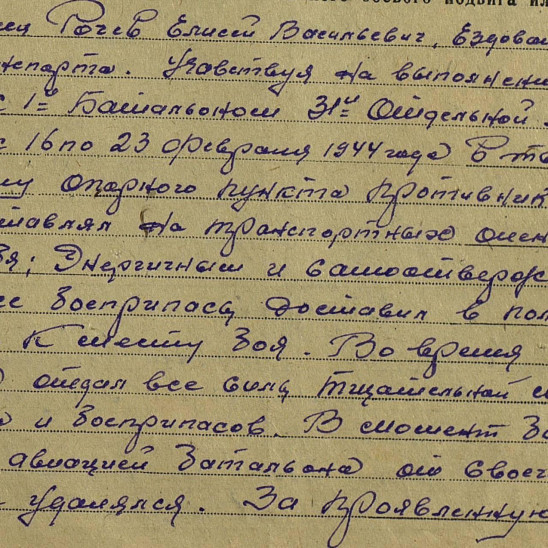 боевого подвига ил
Рочев Елисей Васильевич, Ездовой
нспорта. Учавствуя на выполнени
с 1ᵐ Батальоном 31ой Отдельной
с 16 по 23 февраля 1944 года в т
му опорного пункта противник
ставлял на транспортных олен
Энергичным и самоотвержен
се боеприпасы доставил в пол
К месту боя. Во время
отдал все силы тщательной
и боеприпасов. В момент
авиацией Батальона от своег
удалялся. За проявленную